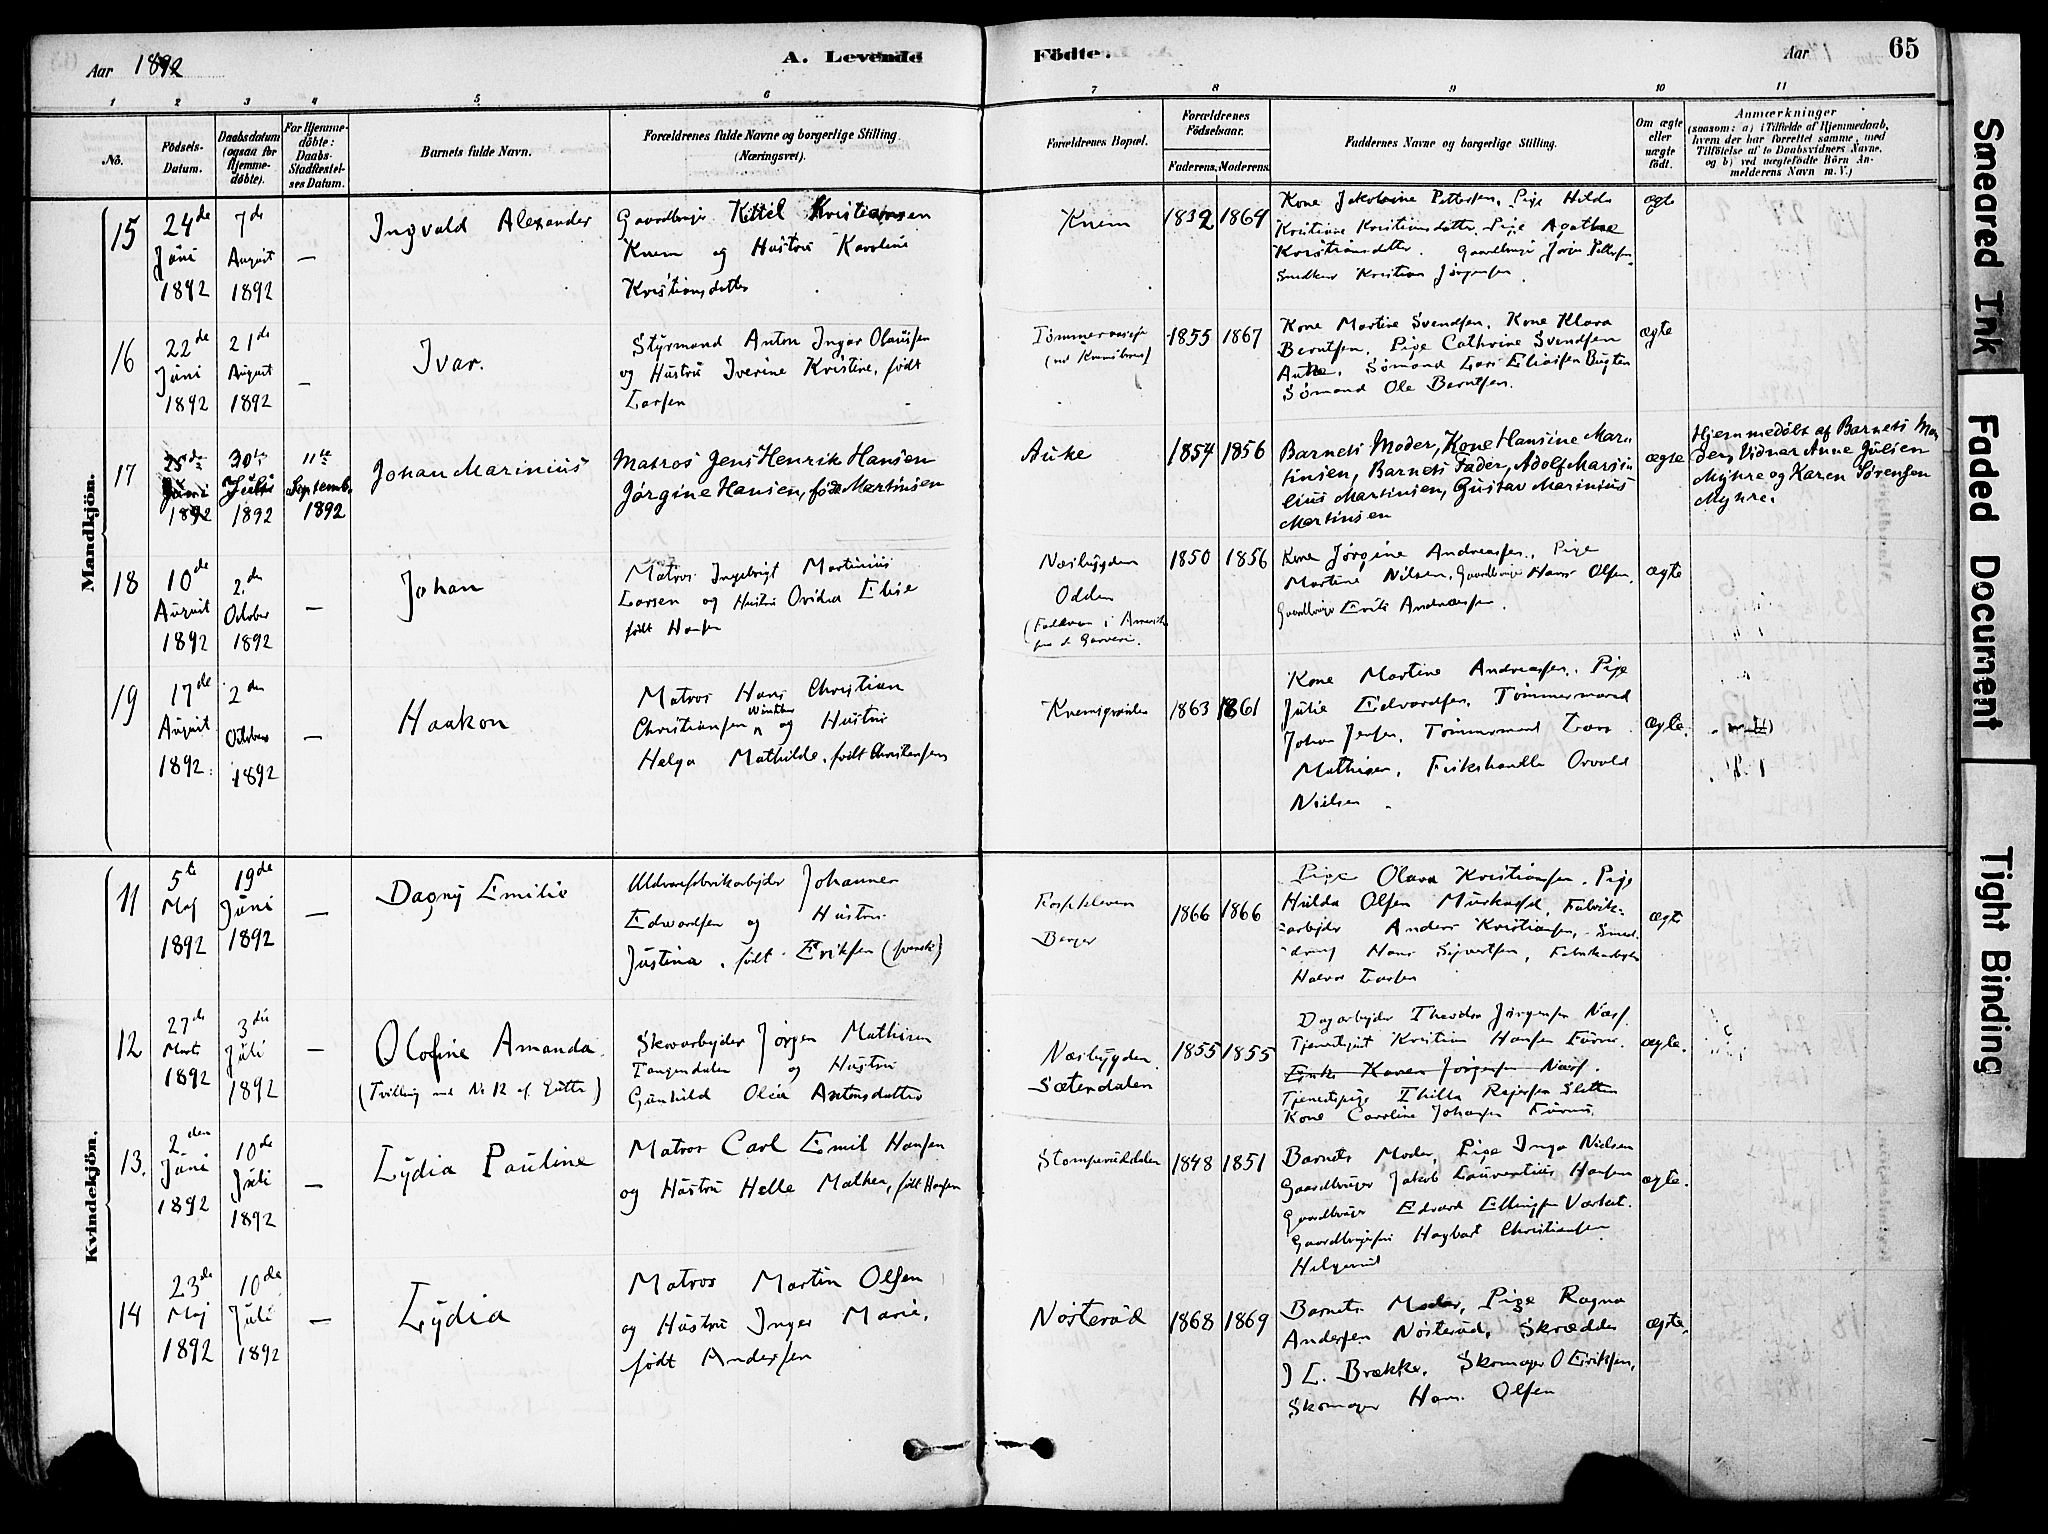 Aar 1892
A. Levende
Födte.
Aar
65
1 2 3 4 5 6 7 8 9 10 11
No.
Födsels-Datum.
Daabsdatum (ogsaa for Hjemme-döbte).
For Hjemme-döbte: Daabs-Stadfæstel-ses Datum.
Barnets fulde Navn.
Forældrenes fulde Navne og borgerlige Stilling. (Næringsvei).
Forældrenes Bopæl.
Forældrenes Födselsaar.
Faderens.
Moderens.
Faddernes Navne og borgerlige Stilling.
Om ægte eller uægte födt.
Anmærkninger
(saasom: a) i Tilfælde af Hjemmedaab,
hvem der har forrettet samme, med
Tilföielse af to Daabsvidners Navne,
og b) ved uægtefödte Börn An-
melderens Navn m. V.)
Mandkjön.
15
24de Juni 1892
7de August 1892
—
Ingvald Alexander
Gaardbruger Kittil Kristiansen
Knem og Hustru Karoline
Kristiansdatter
Knem
1832 1864
Kone Jakobine Pettersen, Pige Hilda
Kristiane Kristiansdatter, Pige Agathe
Kristiansdatter. Gaardbruger
Snedker Kristian Jørgensen
ægte
16
22de Juni 1892
21de August 1892
—
Ivar.
Styrmand Anton Ingar Olausen
og Hustru Iverine Kristine, født
Larsen
1855 1867
Kone Martine Svendsen, Kone Klara
Berntsen, Pige Cathrine Svendsen
Auke, Sømand Lars Eliassen Bugten
Sømand Ole Berntsen.
ægte
17
25de Juni 1892
30te Juli 1892
11te Septemb. 1892
Johan Marinius
Matros Jens Henrik Hansen
Jørgine Hansen, født Martinsen
Auke
1854 1856
Barnets Moder, Kone Hansine Mar-
tinsen, Barnets Fader, Adolf Marsi-
lius Martinsen, Gustav Marinius
Martinsen
ægte
Hjemmedøbt af Barnets Mo-
der, Vidner Anne Julsen
Myhre og Karen Sørensen
Myhre.
18
10de August 1892
2den October 1892
—
Johan
Matros Ingebrigt Martinius
Larsen og Hustru Ovidia Elise
født Hansen
Næsbygden
Odden
1850 1856
Kone Jørgine Andreassen, Pige
Martine Nilsen, Gaardbruger Hans Olsen,
Gaardbruger Erik Andreassen.
ægte
19
17de August 1892.
2den October 1892
—
Haakon
Matros Hans Christian
Christiansen Winther og Hustru
Helga Mathilde, født Christensen
1863 1861
Kone Martine Andreassen. Pige
Julie Edvardsen, Tømmermand
Johan Jensen, Tømmermand Lars
Mathisen, Fiskehandler Osvald
Nielsen
ægte.
Kvindekjön.
11
5te Maj 1892
19de Juni 1892
—
Dagny Emilie
Uldvarefabrikarbejder Johannes
Edwardsen og Hustru
Justina, født Eriksen (svensk)
Berger
1866 1866
Pige Olava Kristiansen. Pige
Hilda Olsen, Fabrik-
arbejder Anders Kristiansen, Smed-
dreng Hans Sigvartsen, Fabrikarbejder
Halvor Larsen
ægte
12
27de Marts 1892
3die Juli 1892
—
Olofine Amanda.
(Tvilling med No 12 af Gutter)
Skovarbejder Jørgen Mathisen
Tangendalen og Hustru
Gunhild Olea Antonsdatter
Næsbygden
Sætendalen
1855 1855
Dagarbejder Theodor Jørgensen Næss.
Tjenestegut Kristian Hansen
Enke Karen Jørgensen Næss.
Tjenestepige Thilla Sletten
Kone Caroline Johansen
ægte.
13.
2den Juni 1892
10de Juli 1892
—
Lydia Pauline
Matros Carl Emil Hansen
og Hustru Helle Mathea, født Hansen
1848 1851
Barnets Moder, Pige Inga Nielsen
Gaardbruger Jakob Laurentius Hansen
Gaardbruger Edvard Ellingsen
Hagbart Christiansen
ægte.
14
23de Maj 1892
10de Juli 1892
—
Lydia
Matros Martin Olsen
og Hustru Inger Marie,
født Andersen
Nøsterud
1868 1869
Barnets Moder, Pige Ragna
Andersen Nøsterud, Skrædder
J L. Brække, Skomager O Eriksen,
Skomager Hans Olsen
ægte.
Smeared Ink
Faded Document
Tight Binding